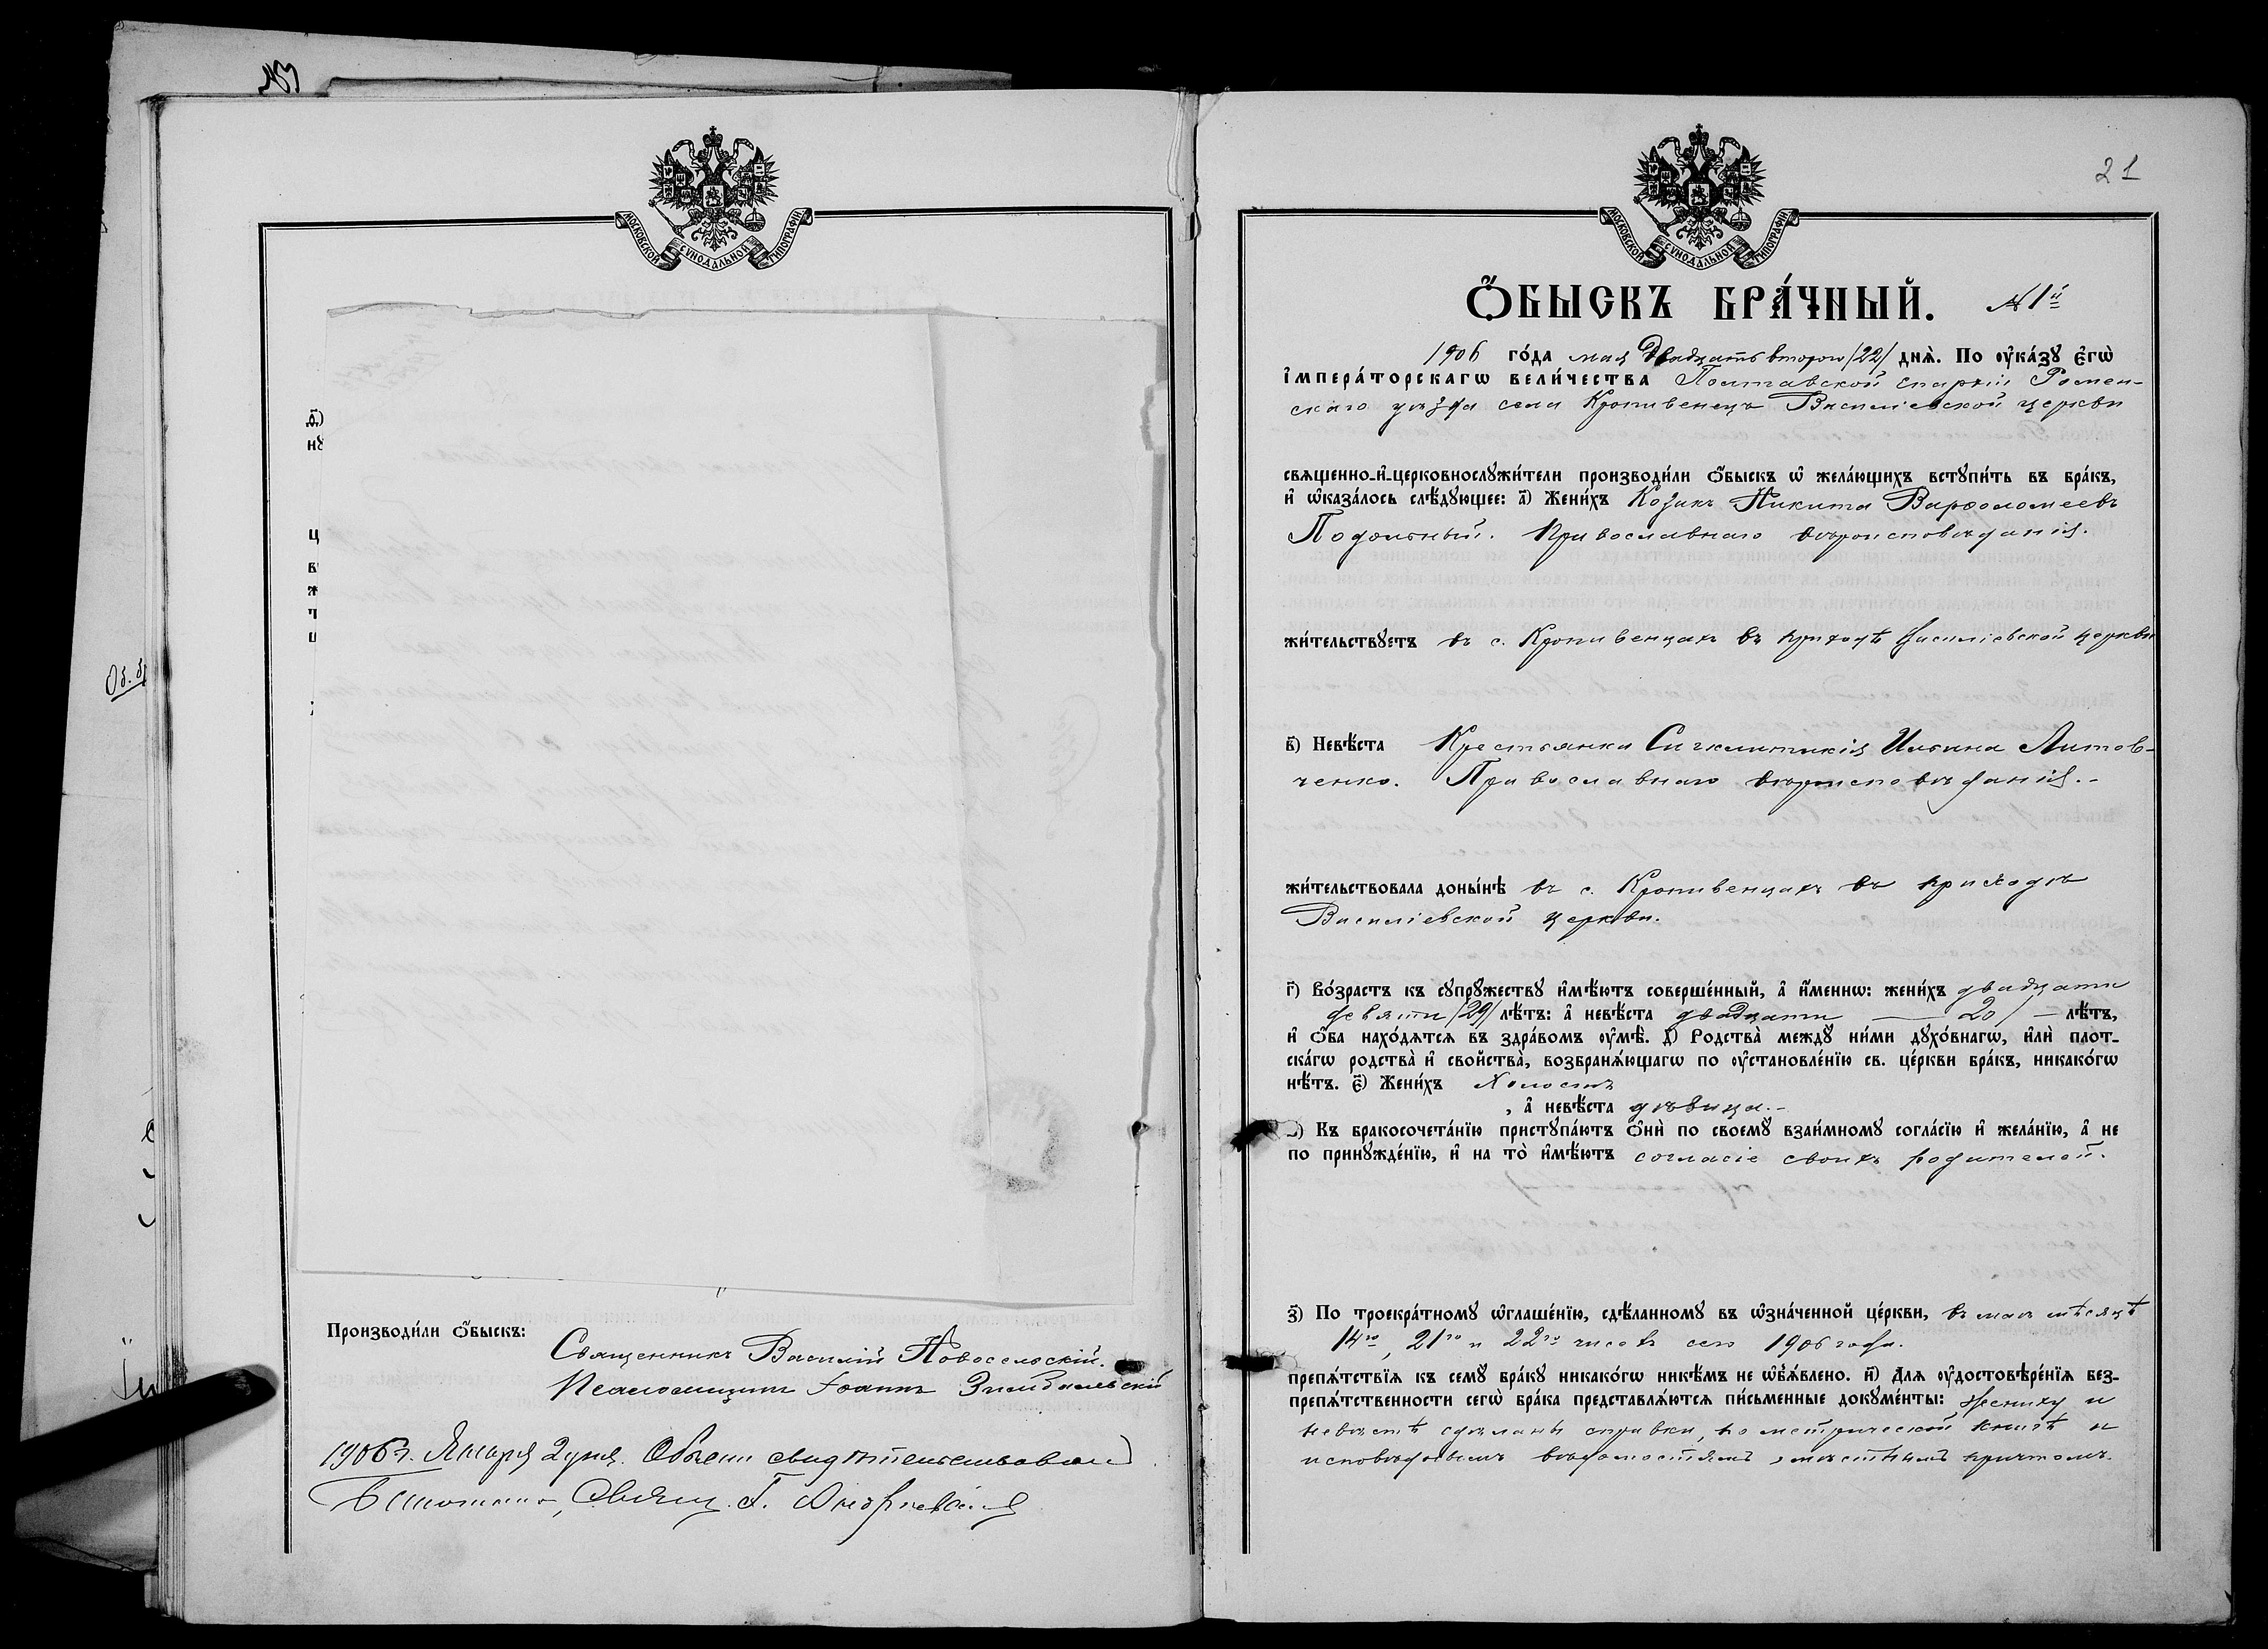 №3
МОСКОВСКОЙ СѴНОДАЛЬНОЙ ТИПОГРАФІИ
а҃)
нꙋ
ц
в
ж
ч
Об. б
Произво́дили ѻ҆́быскъ:
Священникъ Василій Новосельскій.
Псаломщикъ Іоаннъ
1906 г. Января 2 дня. Обыски свидѣтельствовалъ
Благочинный, Свящ. Г.
21
МОСКОВСКОЙ СѴНОДАЛЬНОЙ ТИПОГРАФІИ
Ѻ҆́БЫСКЪ БРА́ЧНЫЙ. № 1й
1906 го́да мая двадцать второго /22/ днѧ̀. По ᲂу҆ка́зꙋ є҆гѡ̀
і҆мпера́торскагѡ вели́чества Полтавской епархіи Ромен-
скаго уѣзда села Кропивенецъ Василіевской церкви
свѧщенно-и҆-церковнослꙋжи́тели производи́ли ѻ҆́быскъ ѡ҆ жела́ющихъ встꙋпи́ть въ бра́къ,
и҆ ѡ҆каза́лось слѣ́дꙋющее: а҃) Жени́хъ Козакъ Никита Варѳоломеевъ
Подольный. Православнаго вѣроисповѣданія.
жи́тельствꙋетъ въ с. Кропивенцахъ въ приходѣ Василіевской церкви
в҃) Невѣ́ста Крестьянка Сигклитикія Ильина Литов-
ченко. Православнаго вѣроисповѣданія.-
жи́тельствовала доны́нѣ въ с. Кропивенцахъ въ приходѣ
Василіевской церкви.
г҃) Во́зрастъ къ сꙋпрꙋ́жествꙋ и҆мѣ́ютъ соверше́нный, а҆ и҆́менно: жени́хъ двадцати
девяти /29/ лѣ́тъ: а҆ невѣ́ста двадцати — 20/ — лѣ́тъ,
и҆ ѻ҆́ба нахо́дѧтсѧ въ здра́вомъ ᲂу҆мѣ̀. д҃) Родства̀ междꙋ̀ ни́ми дꙋхо́внагѡ, и҆лѝ плот-
ска́гѡ родства̀ и҆ сво́йства, возбранѧ́ющагѡ по ᲂу҆становле́нїю св. це́ркви бра́къ, никако́гѡ
нѣ́тъ. є҃) Жени́хъ Холостъ
, а҆ невѣ́ста дѣвица.-
) Къ бракосочета́нїю пристꙋпа́ютъ ѻ҆нѝ по своемꙋ̀ взаи́мномꙋ согла́сїю и҆ жела́нїю, а҆ не
по принꙋжде́нїю, и҆ на то̀ и҆мѣ́ютъ согласіе своихъ родителей.
з҃) По троекра́тномꙋ ѡ҆глаше́нїю, сдѣ́ланномꙋ въ ѡ҆зна́ченной це́ркви, въ маѣ мѣсяцѣ
14го, 21го и 22го числъ сего 1906 года.
препѧ́тствїѧ къ семꙋ̀ бра́кꙋ никако́гѡ никѣ́мъ не ѡ҆б̾ѧ́влено. и҃) Длѧ ᲂу҆достовѣре́нїѧ без-
препѧ́тственности сегѡ̀ бра́ка представлѧ́ютсѧ пи́сьменные докꙋме́нты: жениху и
невѣстѣ сдѣланы справки, по метрической книгѣ и
исповѣднымъ вѣдомостямъ, мѣстнымъ причтомъ.